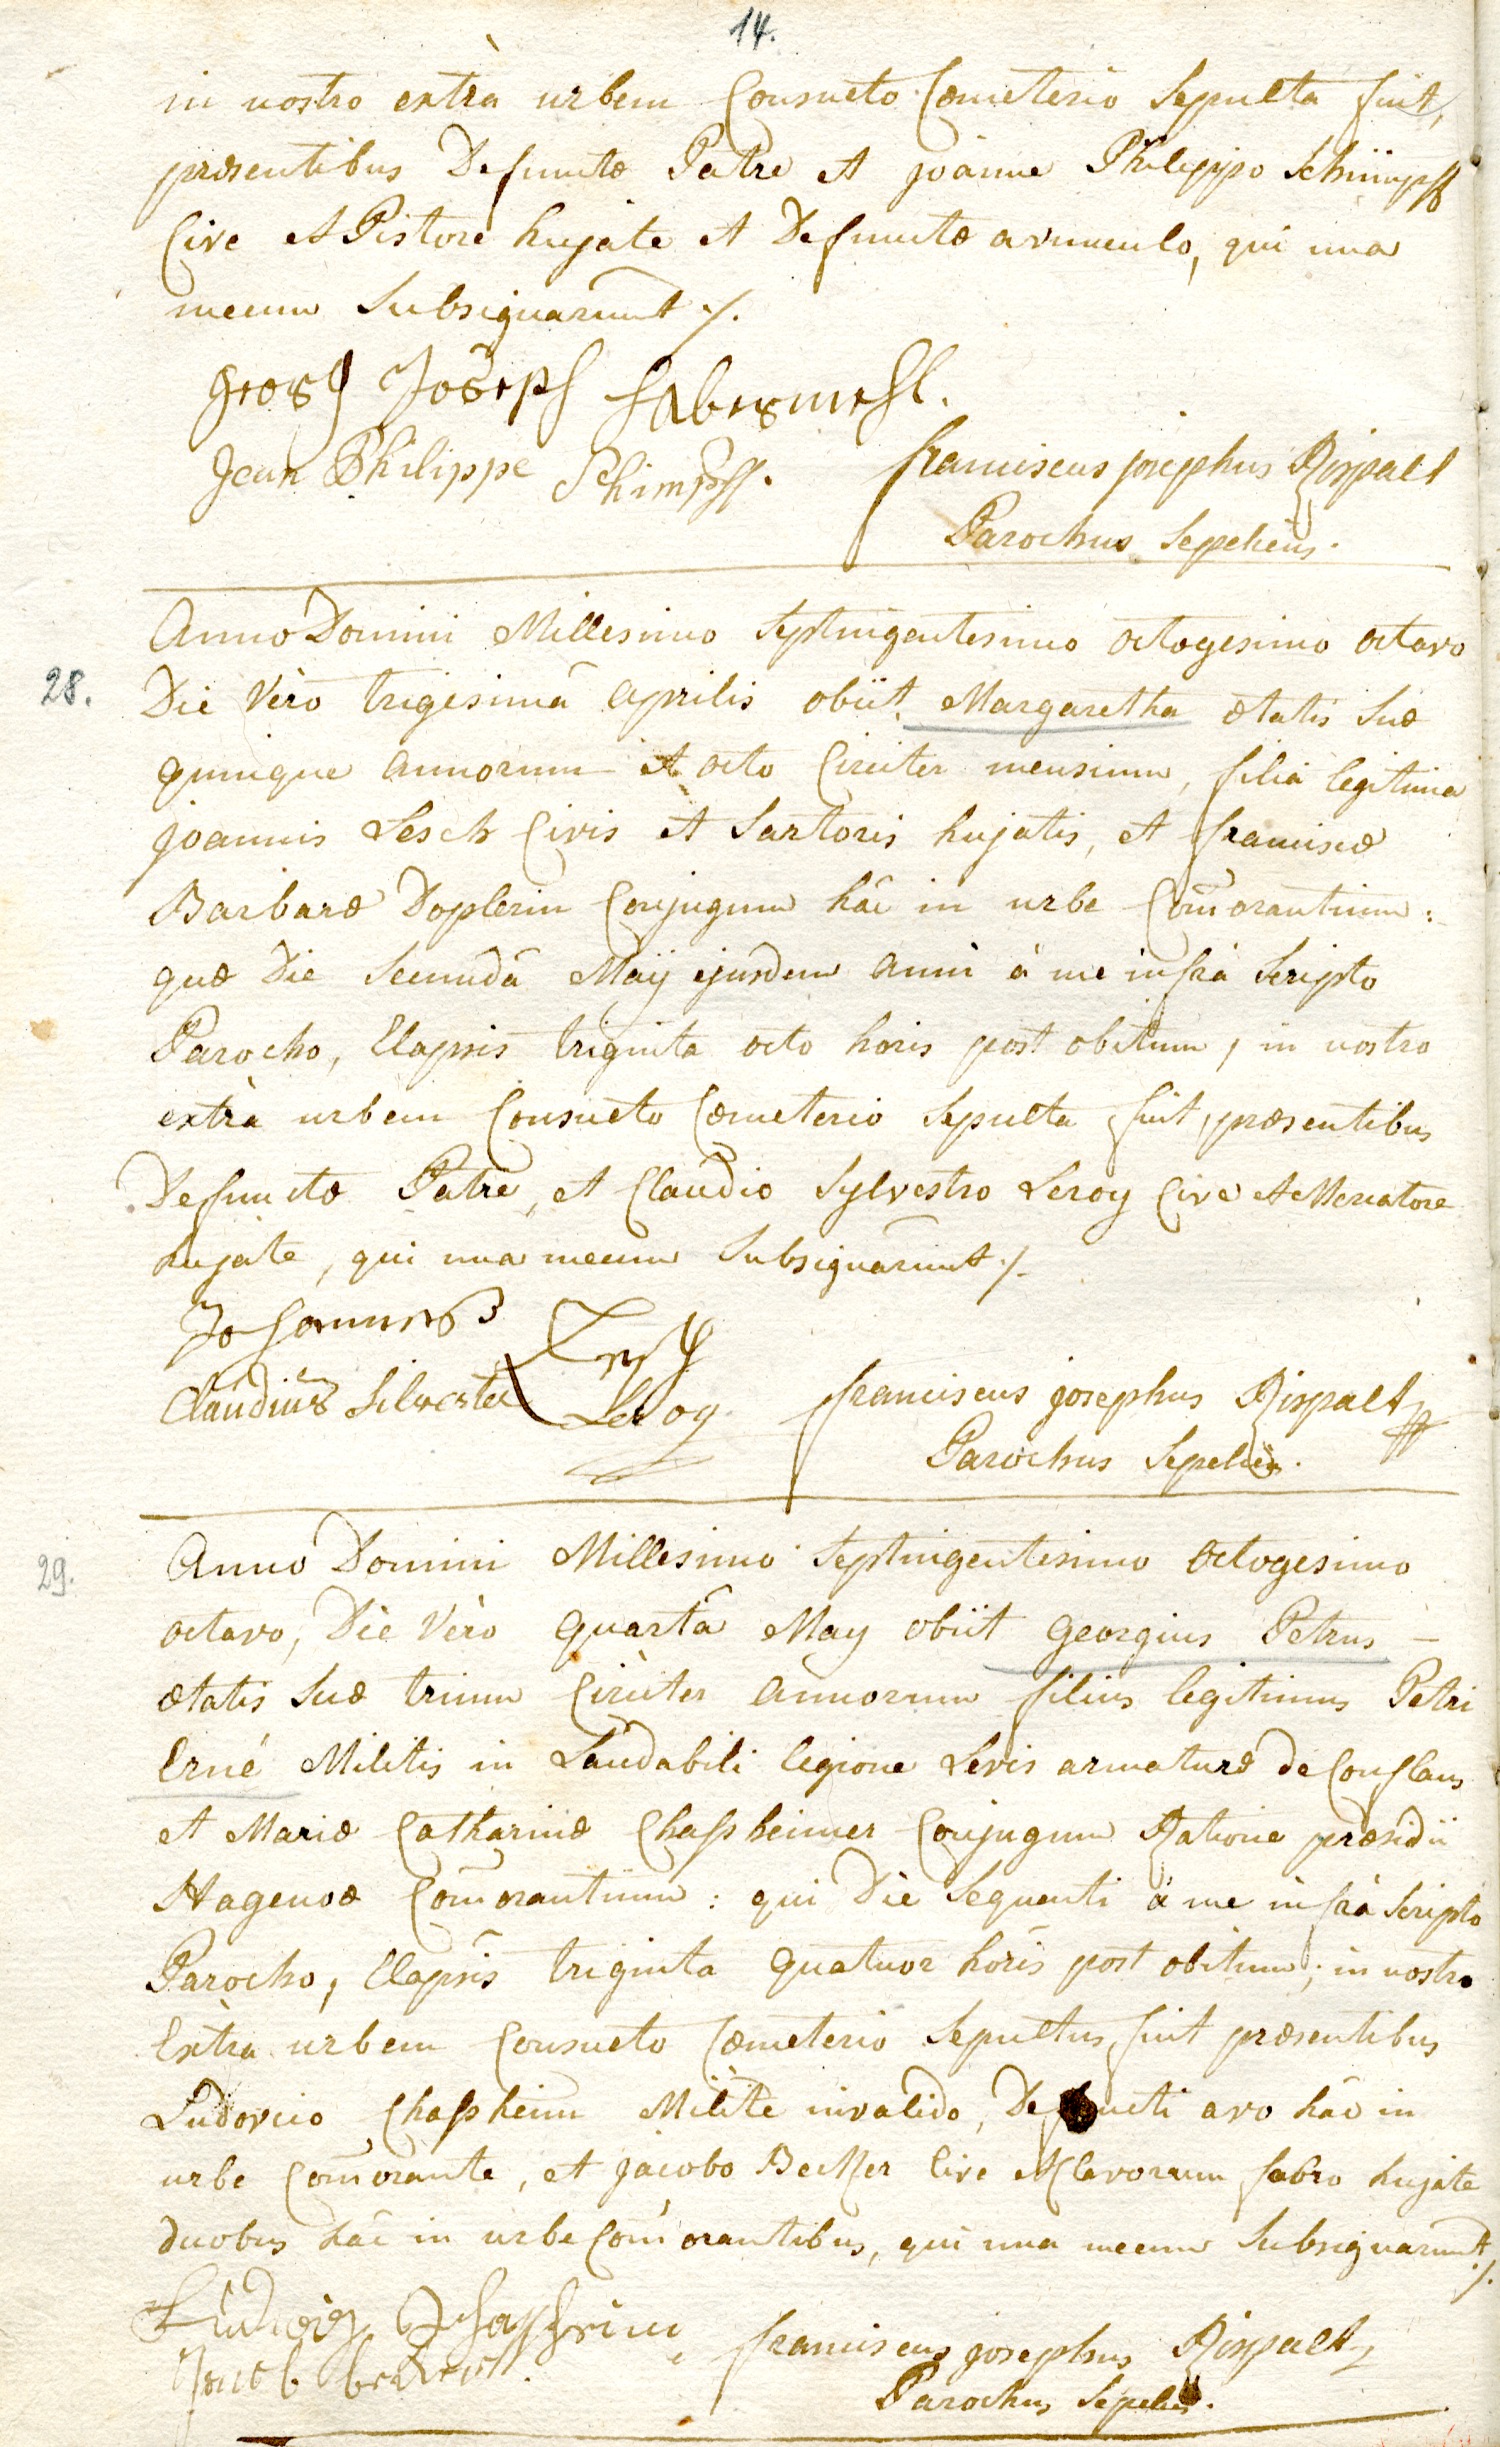 14.
in nostro extrà urbem Consueto Cœmeterio Sepulta fuit,
præsentibus Defunctæ Patre et joanne Philippo Schümpff
Cive et Pistore hujate et Defunctæ avunculo, qui una
mecum Subsignarunt ./.
Georg Joseph Habermehl.
Jean Philippe Schimpff.
franciscus josephus Rispalt
Parochus Sepeliens.
Anno Domini Millesimo Septingentesimo octogesimo octavo
28. Die Vèro trigesimâ aprilis obiit Margaretha ætatis suæ
quinque annorum et octo Circiter mensium, filia legitima
joannis Lesch Civis et Sartoris hujatis, et franciscæ
Barbaræ Doplerin Conjugum hâc in urbe Com̄orantium:
quæ Die Secundâ Maij ejusdem anni à me infrà Scripto
Parocho, Elapsis triginta octo horis post obitum, in nostro
extrà urbem Consueto Cœmeterio Sepulta fuit, præsentibus
Defunctæ Patre, et Claudio Sylvestro Leroy Cive et Mercatore
hujate, qui una mecum Subsignarunt ./.
Johannes
Claudius Silvester Leroy
franciscus josephus Rispalt
Parochus Sepeliens.
29. Anno Domini Millesimo Septingentesimo octogesimo
octavo, Die Vèro quartâ May obiit georgius Petrus –
ætatis Suæ trium Circiter annorum filius legitimus Petri
Erné Militis in Laudabili legione Levis armaturæ de Conflans
et Mariæ Catharinæ Chassheimer Conjugum Ratione præsidii
Hagenoæ Com̄orantium: qui Die Sequenti à me infrà Scripto
Parocho, Elapsis triginta quatuor horis post obitum; in nostro
Extra urbem Consueto Cœmeterio Sepultus fuit præsentibus
Ludovico Chassheim Milite invalido, Defuncti avo hâc in
urbe Com̄orante, et jacobo Becker Cive et Clavorum fabro hujate
duobus hâc in urbe Com̄orantibus, qui una mecum Subsignarunt ./.
Ludwig Schassheim
Jacob becker.
franciscus josephus Rispalt
Parochus Sepeliens.